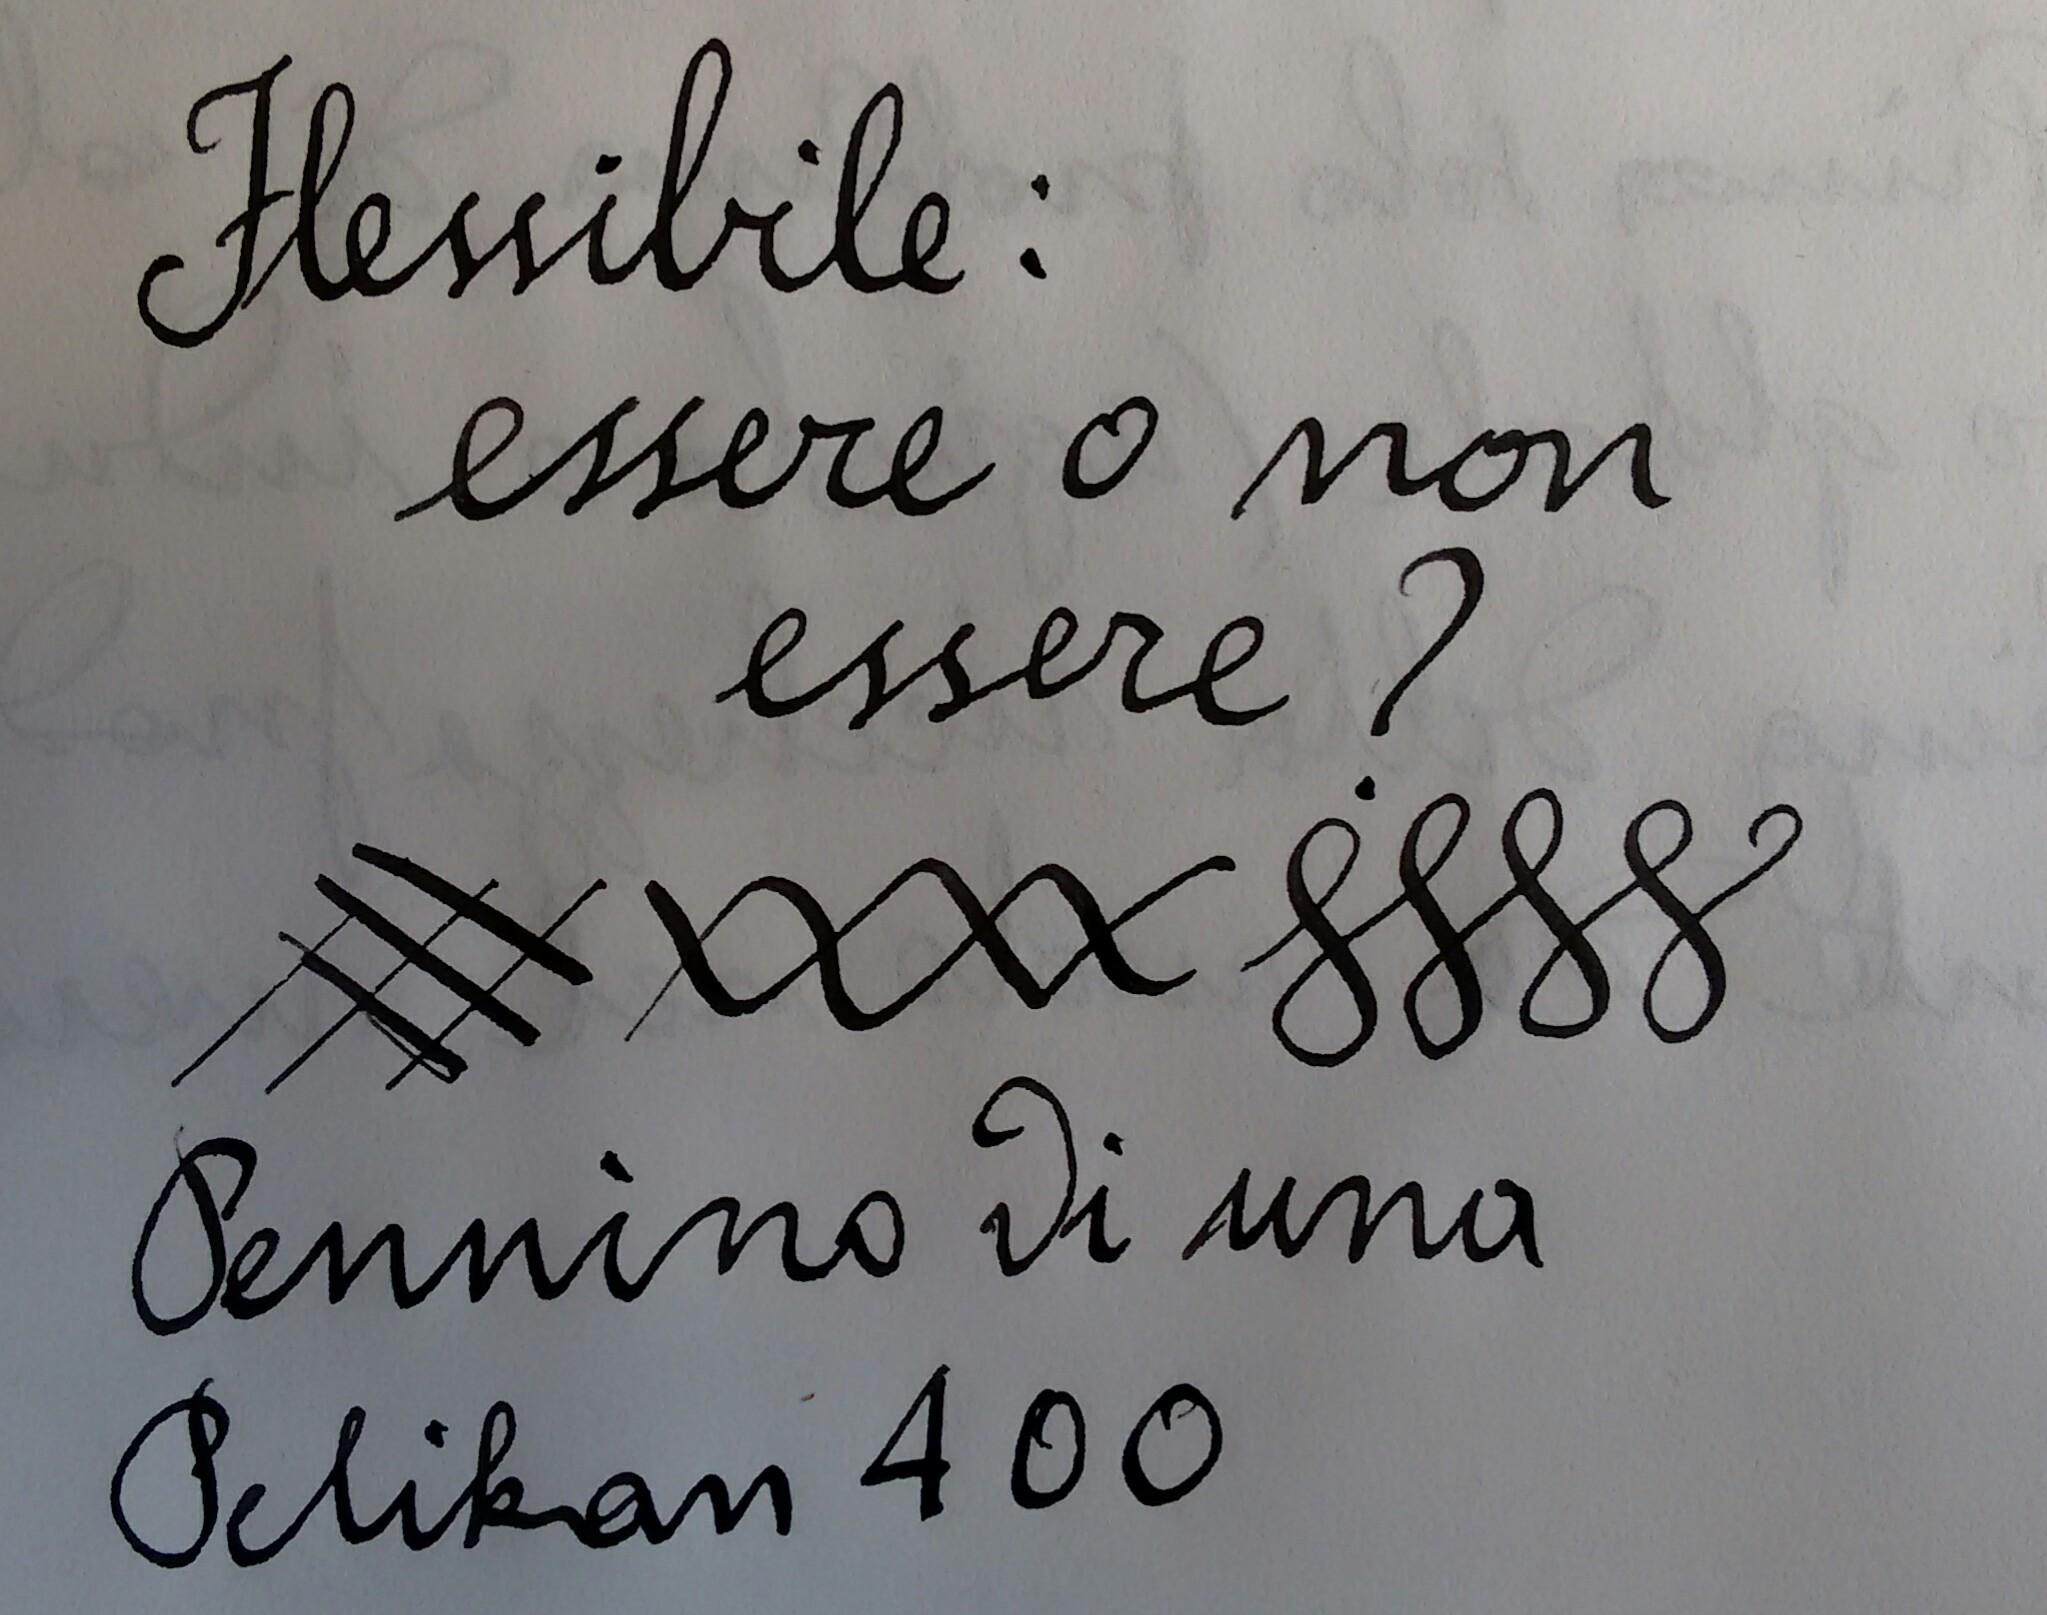 Flessibile:
essere o non
essere?
Pennino di una
Pelikan 400